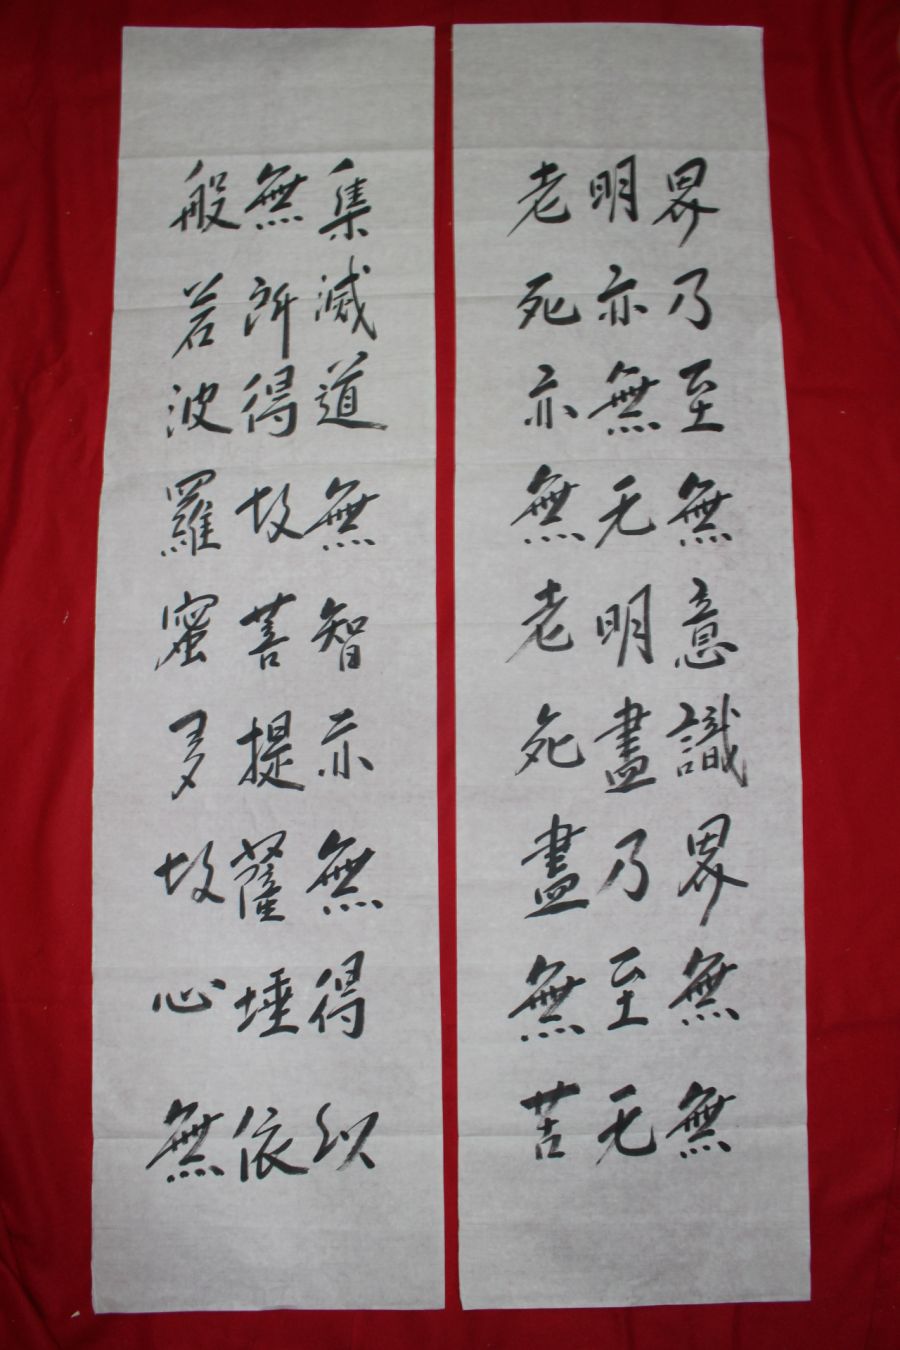 界乃至無意識界無無
明亦無无明盡乃至无
老死亦無老死盡無苦
集滅道無智亦無得以
無所得故菩提薩埵依
般若波羅蜜多故心無